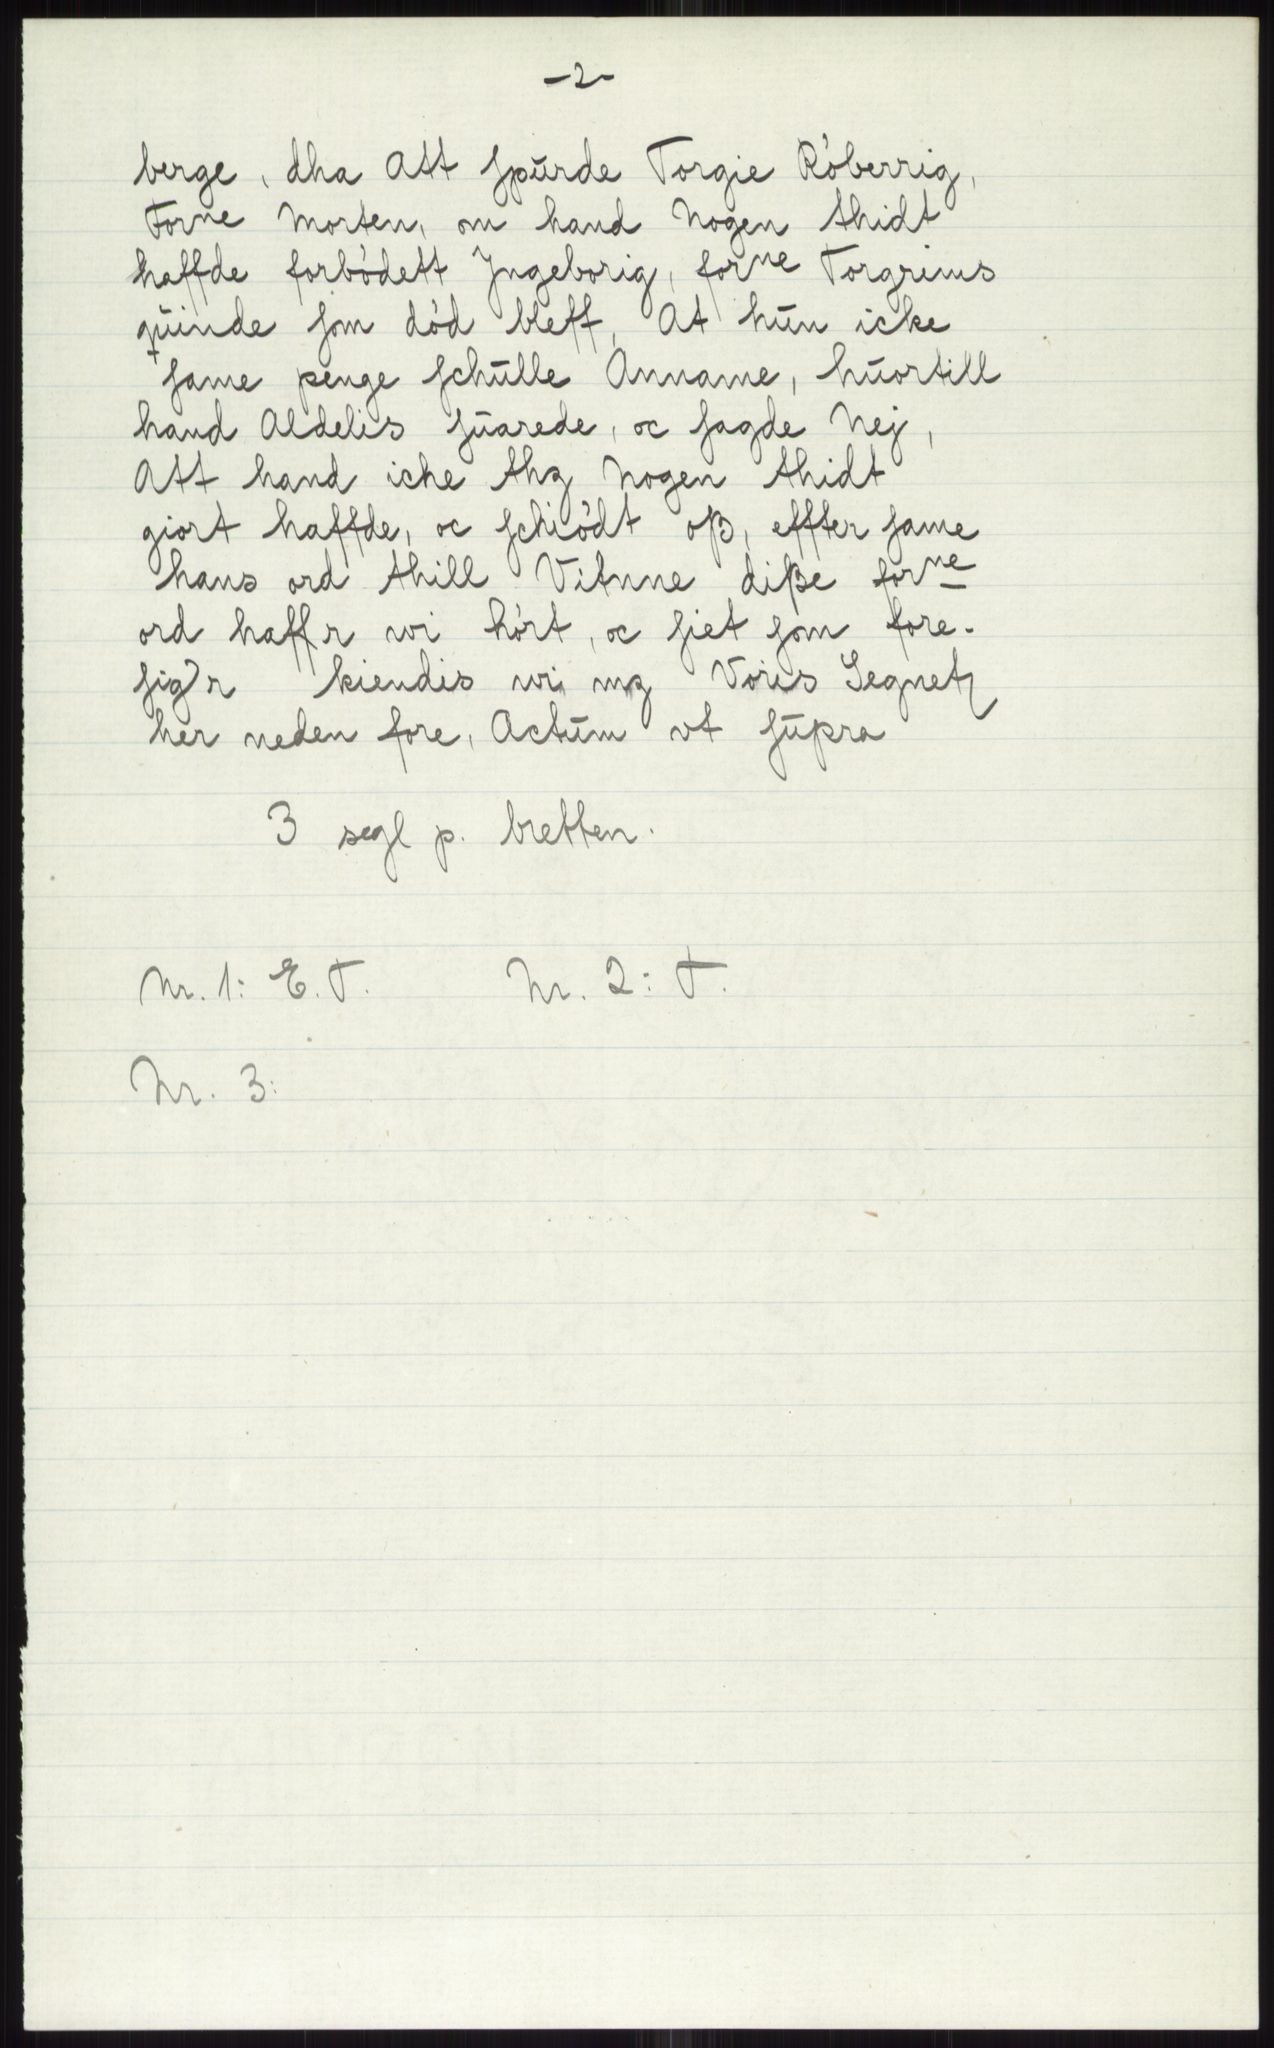 -2-
berge, dha Att spūrde Torgie Róberrig,
Forne Morten, om hand Nogen thidt
haffde forbódett Jngeborig, forne Torgrims
qūinde som dód bleff, At hūn icke
same penge schūlle Anname, hūortill
hand Aldelis sūarede, oc sagde Nej,
Att hand icke thz Nogen thidt
giort haffde, oc schiódt oß, effter same
hans ord thill Vitnne diße forne
ord haffr wi hórt, oc siet som fore-
sigr kiendis wi mz Voris Segnetz
her neden fore, Actūm vt sūpra
3 segl p. bretten.
Nr. 1: E. T. Nr. 2: T.
Nr. 3: